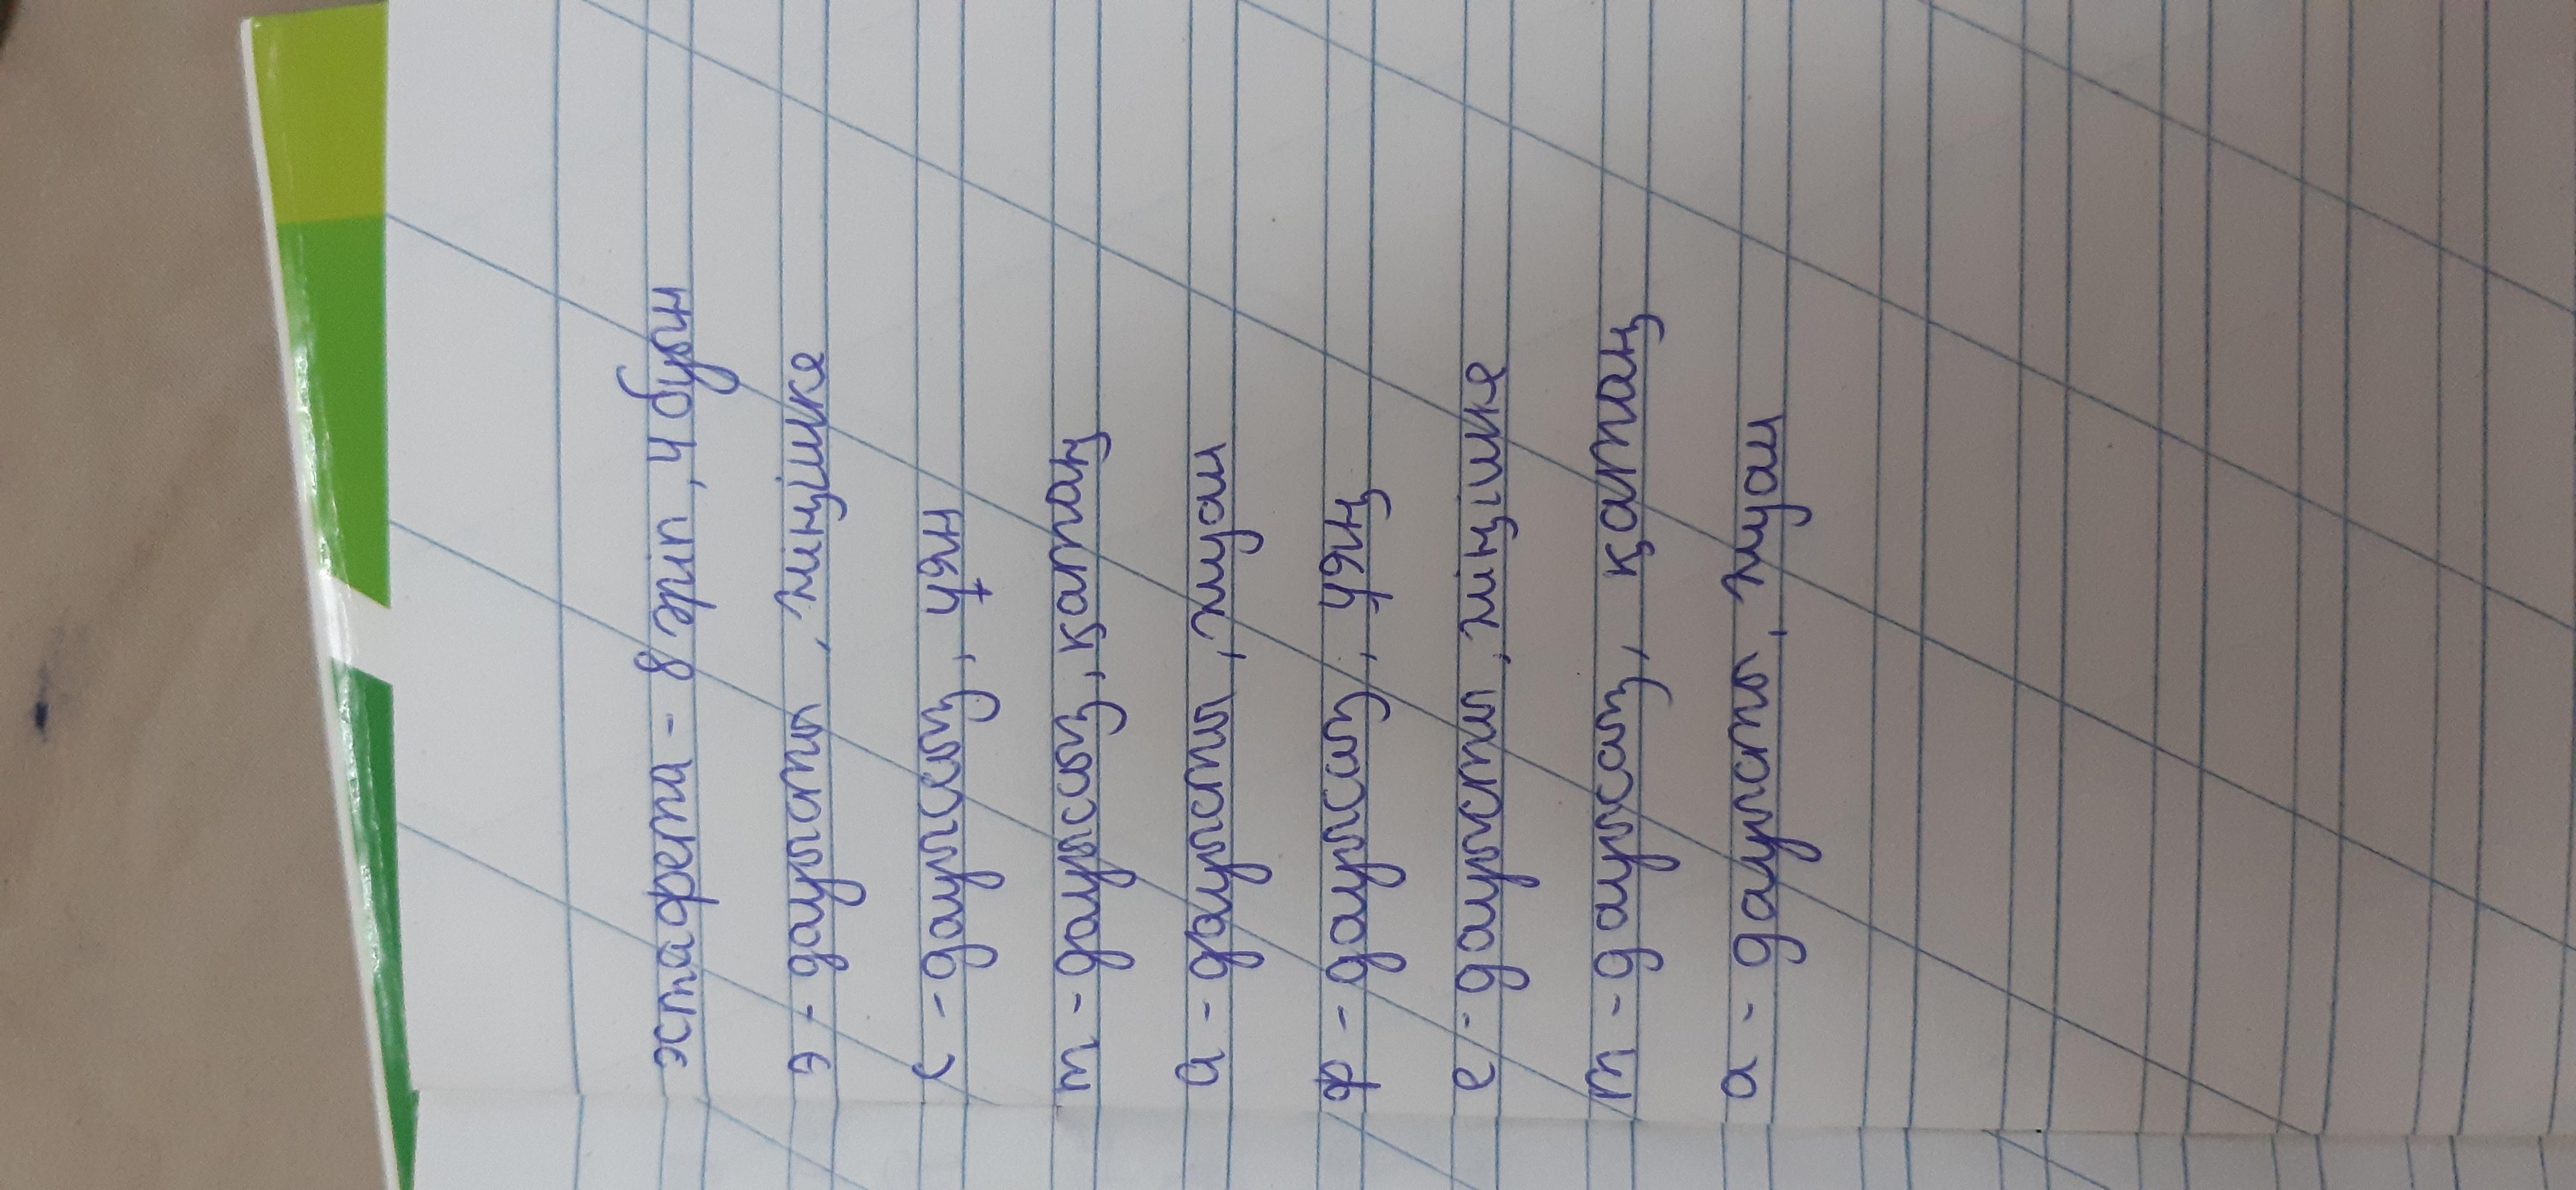 эстафета - 8 әріп, 4 буын
э - дауысты, жіңішке
с - дауыссыз, ұян
т - дауыссыз, қатаң
а - дауысты, жуан
ф - дауыссыз, ұяң
е - дауысты, жіңішке
т - дауыссыз, қатаң
а - дауысты, жуан